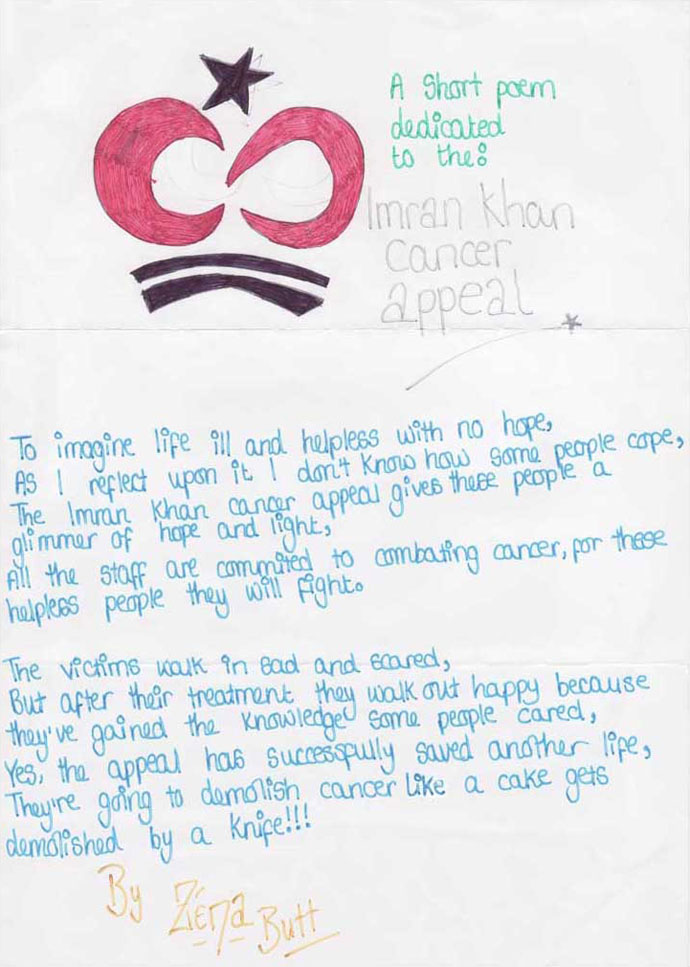 A Short poem
dedicated
to the:
Imran Khan
cancer
appeal
To imagine life ill and helpless with no hope,
As I reflect upon it I don't know how some people cope,
The Imran Khan cancer appeal gives these people a
glimmer of hope and light,
All the staff are commited to combating cancer, for these
helpless people they will fight.
The victims walk in sad and scared,
But after their treatment they walk out happy because
they've gained the knowledge some people cared,
Yes, the appeal has successfully saved another life,
They're going to demolish cancer like a cake gets
demolished by a knife!!!
By Ziena Butt